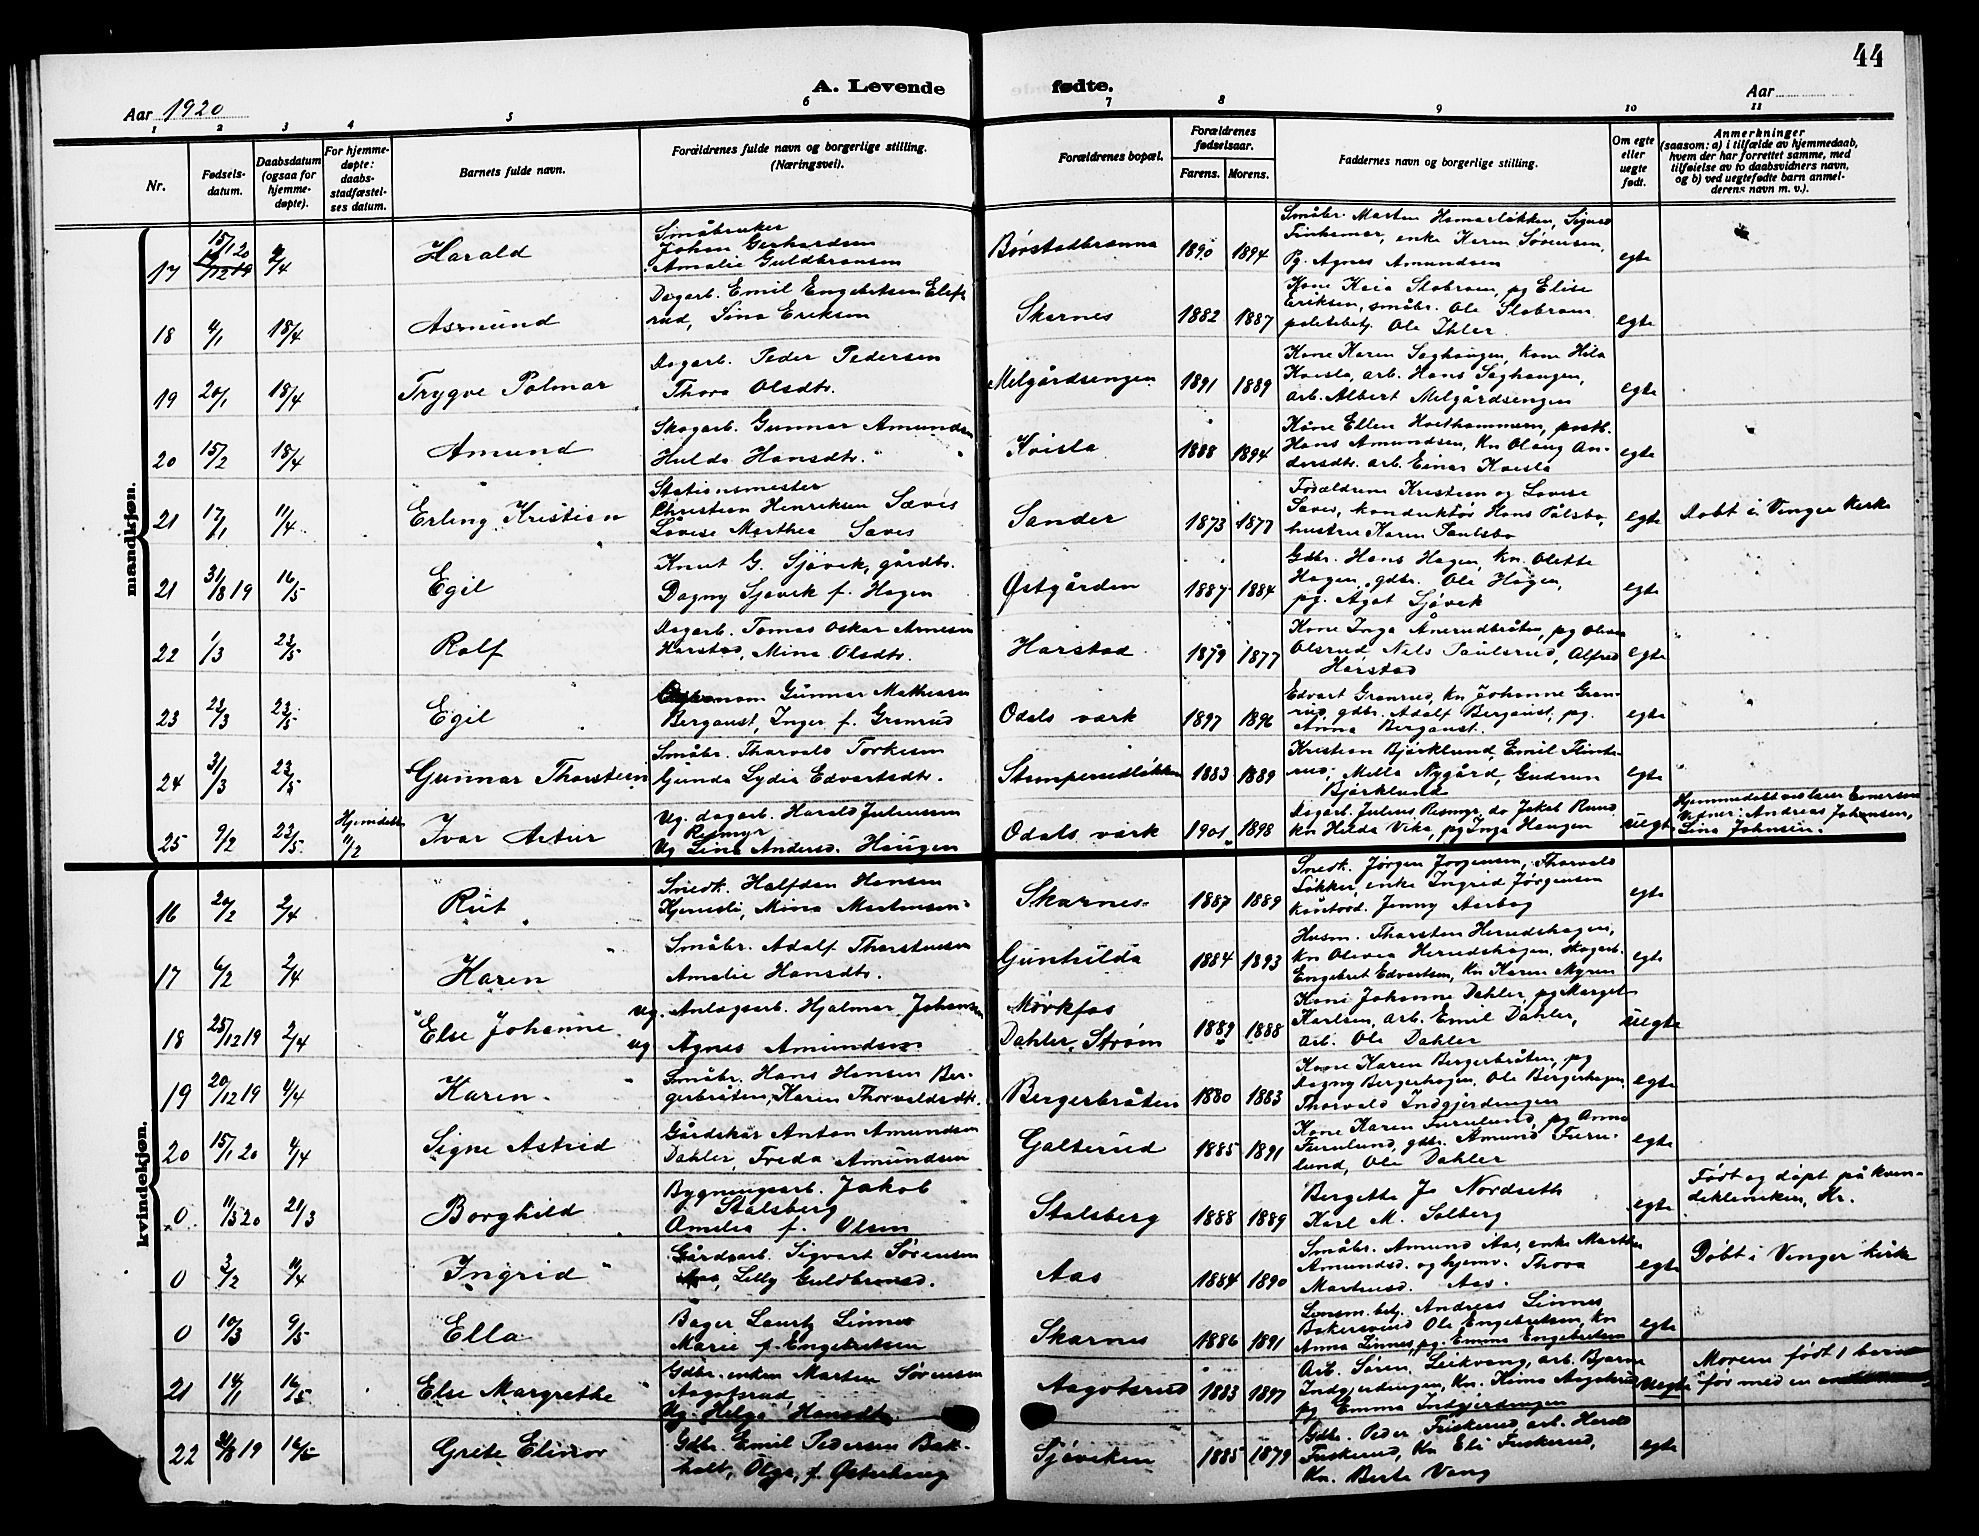 44
A. Levende fødte.
Aar 1920
Aar
1 2 3 4 5 6 7 8 9 10 11
Nr.
Fødsels-
datum.
Daabsdatum
(ogsaa for
hjemme-
døpte).
For hjemme-
døpte:
daabs-
stadfæstel-
ses datum.
Barnets fulde navn.
Forældrenes fulde navn og borgerlige stilling.
(Næringsvei).
Forældrenes bopæl.
Forældrenes
fødselsaar.
Farens. Morens.
Faddernes navn og borgerlige stilling.
Om egte
eller
uegte
født.
Anmerkninger
(saasom: a) i tilfælde av hjemmedaab,
hvem der har forrettet samme, med
tilføielse av to daabsvidners navn,
og b) ved uegtefødte barn anmel-
derens navn m. v.).
mandkjøn.
17 15/1 20 2/4 Harald
Småbruker
Johan Gerhardsen
Amalie Guldbransen
Børstadbrænna 1890 1894
Småbr. Marten Hamarløkken, Signe
Finhamar, enke Karen Sørensen,
Pg. Agnes Amundsen
egte
18 4/1 18/4 Asmund
Dagarb. Emil Engebretsen Elef-
rud, Sina Eriksen
Skarnes 1882 1887
Kone Kaia Slobraen, pg Elise
Eriksen, småbr. Ole Slobraen
politibetj. Ole Ihler.
egte
19 20/1 18/4 Trygve Palmar
Dagarb. Peder Pedersen
Thora Olsdtr.
Melgårdsengen 1891 1889
Kone Karen Saghaugen, kone Hila
Kvisla, arb. Hans Saghaugen,
arb. Albert Melgårdsengen
egte
20 15/2 18/4 Amund
Skogarb. Gunnar Amundsen
Hulda Hansdtr.
Kvisla 1888 1894
Kone Ellen Holthammern, postb.
Hans Amundsen, kn Olaug An-
dersdtr. arb. Einar Kvisla
egte
21 17/1 11/4 Erling Kristian
Stationsmester
Christian Henriksen Sævis
Lovise Marthea Saves
Sander 1873 1877
Forældrene Kristian og Lovise
Saves, konduktør Hans Pålsbo,
hustru Karen Paulsbo
egte Døbt i Vinger Kirke
21 31/8 19 16/5 Egil
Knut G. Sjøvik, gårdbr.
Dagny Sjøvik f. Hagen
Østgården 1887 1884
Gdbr. Hans Hagen, kn. Olette
Hagen, gdbr. Ole Hagen,
pg. Agot Sjøvik
egte
22 1/3 23/5 Rolf
Dagarb. Tomas Oskar Arnesen
Harstad, Mina Olsdtr.
Harstad 1879 1877
Kone Inga Ånerudbråten, pg Oliva
Olsrud, Nils Paulsrud, Alfred
Harstad
egte
23 23/3 23/5 Egil
Gunnar Mathiassen
Bergaust, Inger f. Granrud
Odals værk 1897 1896
Edvart Granrud, kn Johanne Gran-
rud, gdbr. Adolf Bergaust, pg.
Anna Bergaust.
egte
24 31/3 23/5 Gunnar Thorstein
Småbr. Thorvald Torkesen
Gunda Lydia Edvartsdtr.
Stomperudløkken 1883 1889
Kristian Bjørklund, Emil Flinte-
rud, Mella Nygård, Gudrun
Bjørklund
egte
25 9/2 23/5 Hjemdøbt 11/2 Ivar Artur
Ug. dagarb. Harald Juliussen
Resmyr
Ug Lina Anders. Haugen
Odals værk 1901 1898
Dagarb. Julius Resmyr, do Jakob Rund
kn Hilda Vika, pg Inga Haugen
uegte
Hjemmedøbt ved lærer Einersen
Vidner: Andreas Johansen,
Lina Johnsen.
kvindekjøn.
16 20/2 2/4 Rut
Snedk. Halfdan Hansen
Kjernsli, Mina Martinsen
Skarnes 1887 1889
Snedk. Jørgen Jørgensen, Thorvald
Løkker, enke Ingrid Jørgensen
Jenny Aarbog
egte
17 6/2 2/4 Karen
Småbr. Adolf Thorstensen
Amalie Hansdtr.
Gunhilda 1884 1893
Husm. Thorsten Herudshagen,
kn Olivia Herudshagen, skogarb.
Engebret Edvartsen, kn Karen Myren
egte
18 25/12 19 2/4 Else Johanne
ug. Anlægsarb. Hjalmar Johansen
ug Agnes Amundsen
Mørkfos
Dahler, Strøm 1889 1888
Kone Johanne Dahler, pg Margit
Karlsen, arb. Emil Dahler,
arb. Ole Dahler
uegte
19 20/12 19 4/4 Karen
Småbr. Hans Hansen Ber-
gerbråten, Karen Thorvaldsdtr.
Bergerbråten 1880 1883
Kone Karen Bergerbråten, pg
Dagny Bergerhagen, Ole Bergerhagen
Thorvald Indgjerdingen
egte
20 15/1 20 4/4 Signe Astrid
Gårdskar Anton Amundsen
Dahler, Freda Amundsen
Galterud 1885 1891
Kone Karen Furulund, pg Anna
Furulund, gdbr. Amund Furu-
lund, Ole Dahler
egte
0 11/3 20 21/3 Borghild
Bygningsarb. Jakob
Stalsberg
Amelia f. Olsen
Stalsberg 1888 1889
Bergette J. Nordseth
Karl M. Solberg
egte
Født og døpt på kvin-
dekliniken, Kr.
0 3/2 11/4 Ingrid
Gårdsarb. Sigvart Sørensen
Aas, Lilly Guldbrands.
Aas 1884 1890
Småbr. Amund Aas, enke Marthe
Amundsd. og hjemv. Thora
Martinsd. Aas.
egte Døbt i Vinger kirke
0 10/3 9/5 Ella
Bager Lauritz Linnes
Marie f. Engebretsen
Skarnes 1886 1891
Lensm.betj. Andreas Linnes
Bakersvend Ole Engebretsen, kn
Anna Linnes, pg. Emma Engebretsen
egte
21 14/1 16/5 Else Margrethe
Gdbr. enkem Marten Sørensen
Aagotsrud
Ug. Helga Hansdtr.
Aagotsrud 1883 1897
Arb. Søren Leikvang, arb. Bjarne
Indgjerdingen, kn. Hima Aagotsrud
pg Emma Indgjerdingen
uegte
Moren født 1 barn
før med en
22 31/8 19 16/5 Grete Elinor
Gdbr. Emil Pedersen Bak-
holt, Olga, f. Østerhaug
Sjøviken 1885 1879
Gdbr. Peder Friskerud, arb. Harald
Fuskerud, kn Eli Fuskerud,
kn. Berte Vang
egte